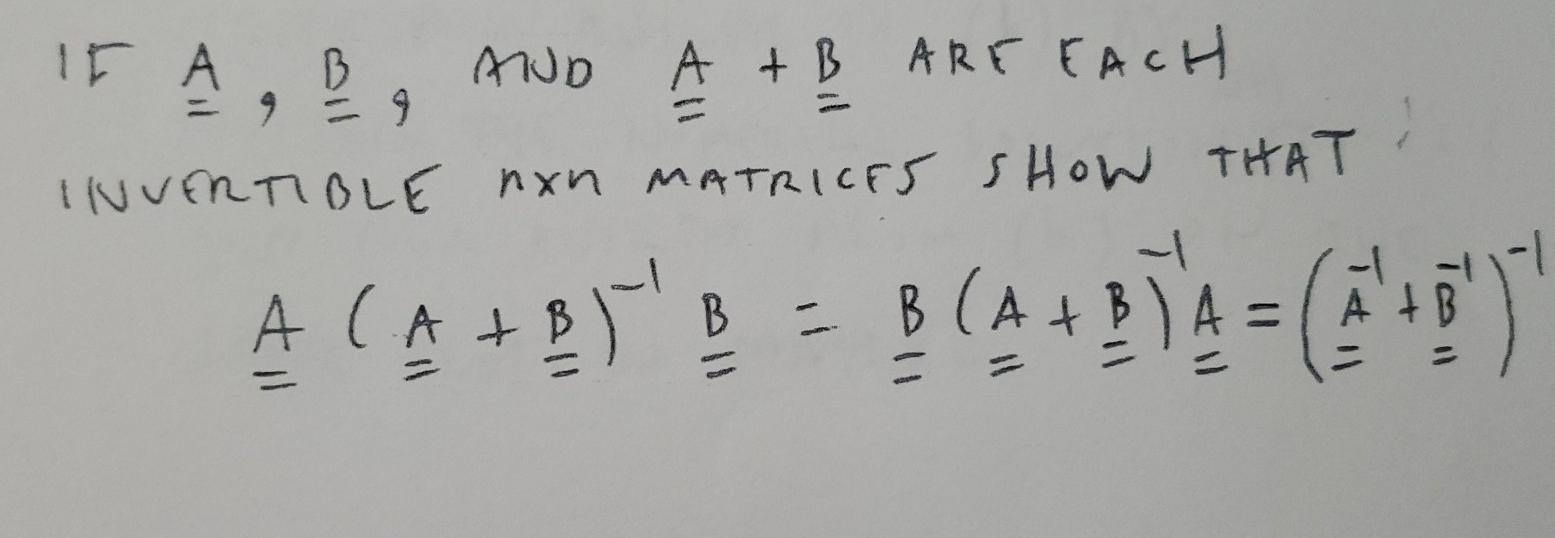 IF A, B, AND A + B ARE EACH
INVERTIBLE nxn MATRICES SHOW THAT:
A (A + B)⁻¹ B = B (A + B)⁻¹ A = (A⁻¹ + B⁻¹)⁻¹